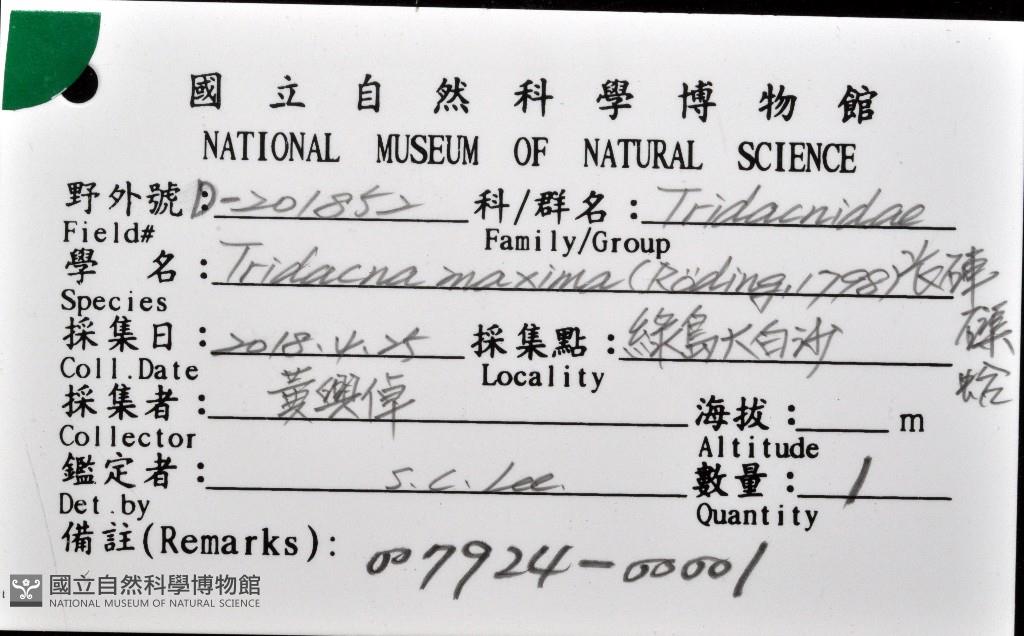 國立自然科學博物館
NATIONAL MUSEUM OF NATURAL SCIENCE
野外號：D-201852 科/群名：Tridacnidae
Field# Family/Group
學 名：Tridacna maxima (Röding, 1798) 長硨磲蛤
Species
採集日：2018.4.25 採集點：綠島大白沙
Coll.Date Locality
採集者：黃興倬 海拔： m
Collector Altitude
鑑定者：S.C. Lee. 數量：1
Det.by Quantity
備註(Remarks): 007924-00001
國立自然科學博物館
NATIONAL MUSEUM OF NATURAL SCIENCE